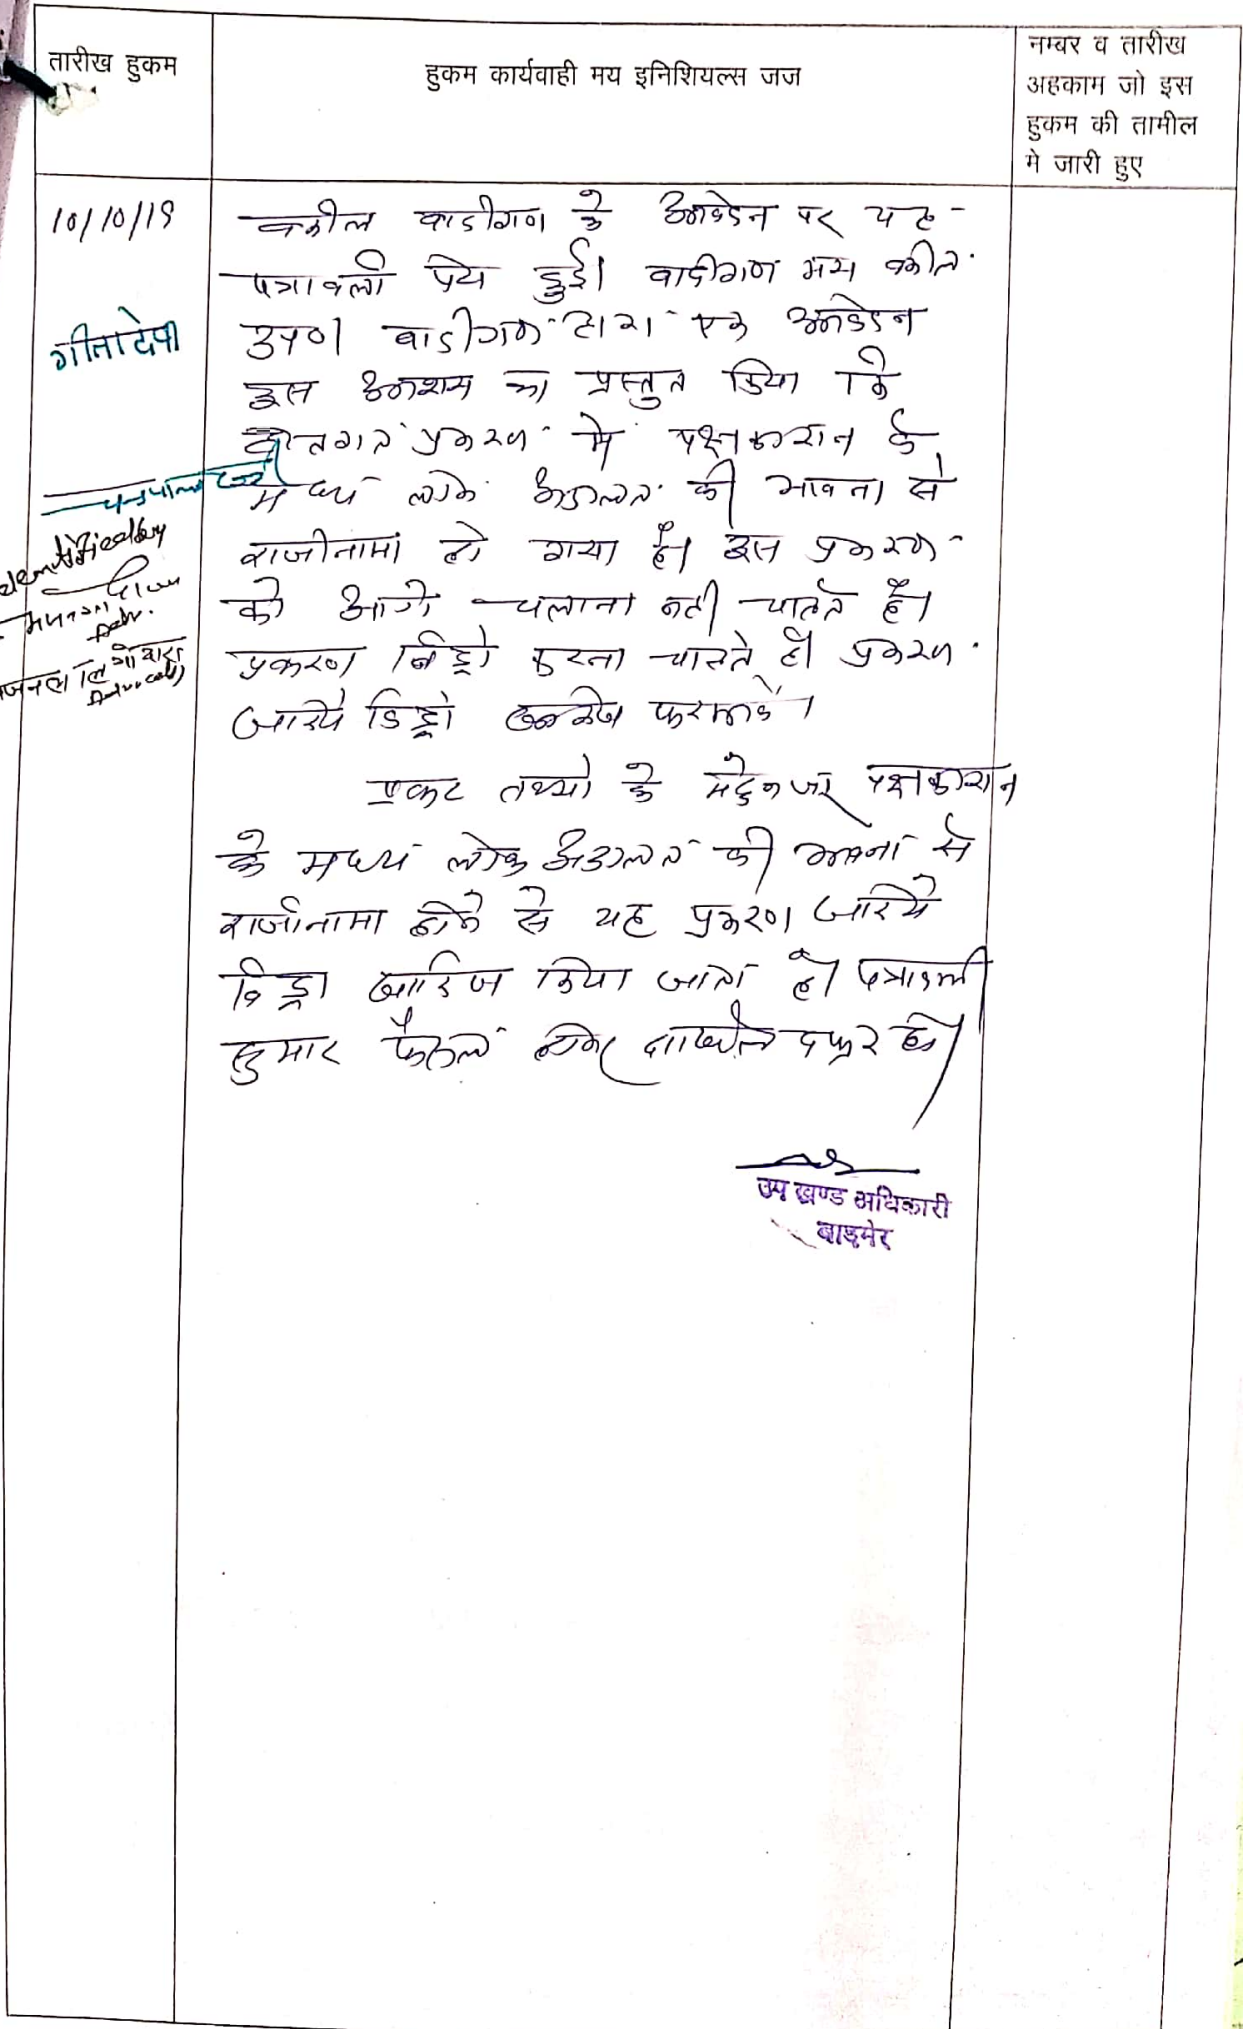 तारीख हुकम
हुकम कार्यवाही मय इनिशियल्स जज
नम्बर व तारीख
अहकाम जो इस
हुकम की तामील
मे जारी हुए
10/10/19
वकील वादीगण के आवेदन पर यह
पत्रावली पेश हुई। वादीगण मय वकील
उप०। वादीगण द्वारा एक आवेदन
इस आशय का प्रस्तुत किया कि
प्रकरण में पक्षकारान के
मध्य लोक अदालत की भावना से
राजीनामा हो गया है। इस प्रकरण
को आगे चलाना नही चाहते है।
प्रकरण विड्रो करना चाहते है। प्रकरण
जरिये विड्रो फरमावें।
प्रकट तथ्यो के मद्देनजर पक्षकारान
के मध्य लोक अदालत की भावना से
राजीनामा होने से यह प्रकरण जरिये
विड्रा खारिज किया जाता है। पत्रावली
शुमार फैसल होकर दाखिल दफ्तर हो।
गीतादेवी
Identified by
Adv.
Advocate
उप खण्ड अधिकारी
बाड़मेर